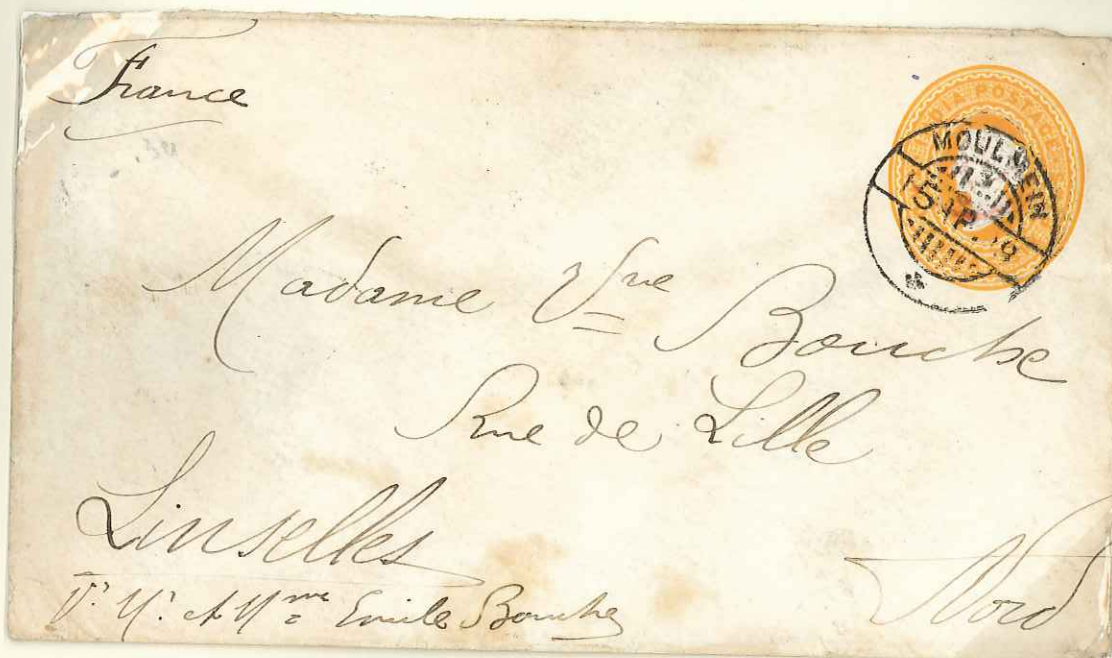 France
INDIA POSTAGE
MOULMEIN
15 AP.
Madame Vve Bouche
Rue de Lille
Linselles
Nord
et Mme Emile Bouche